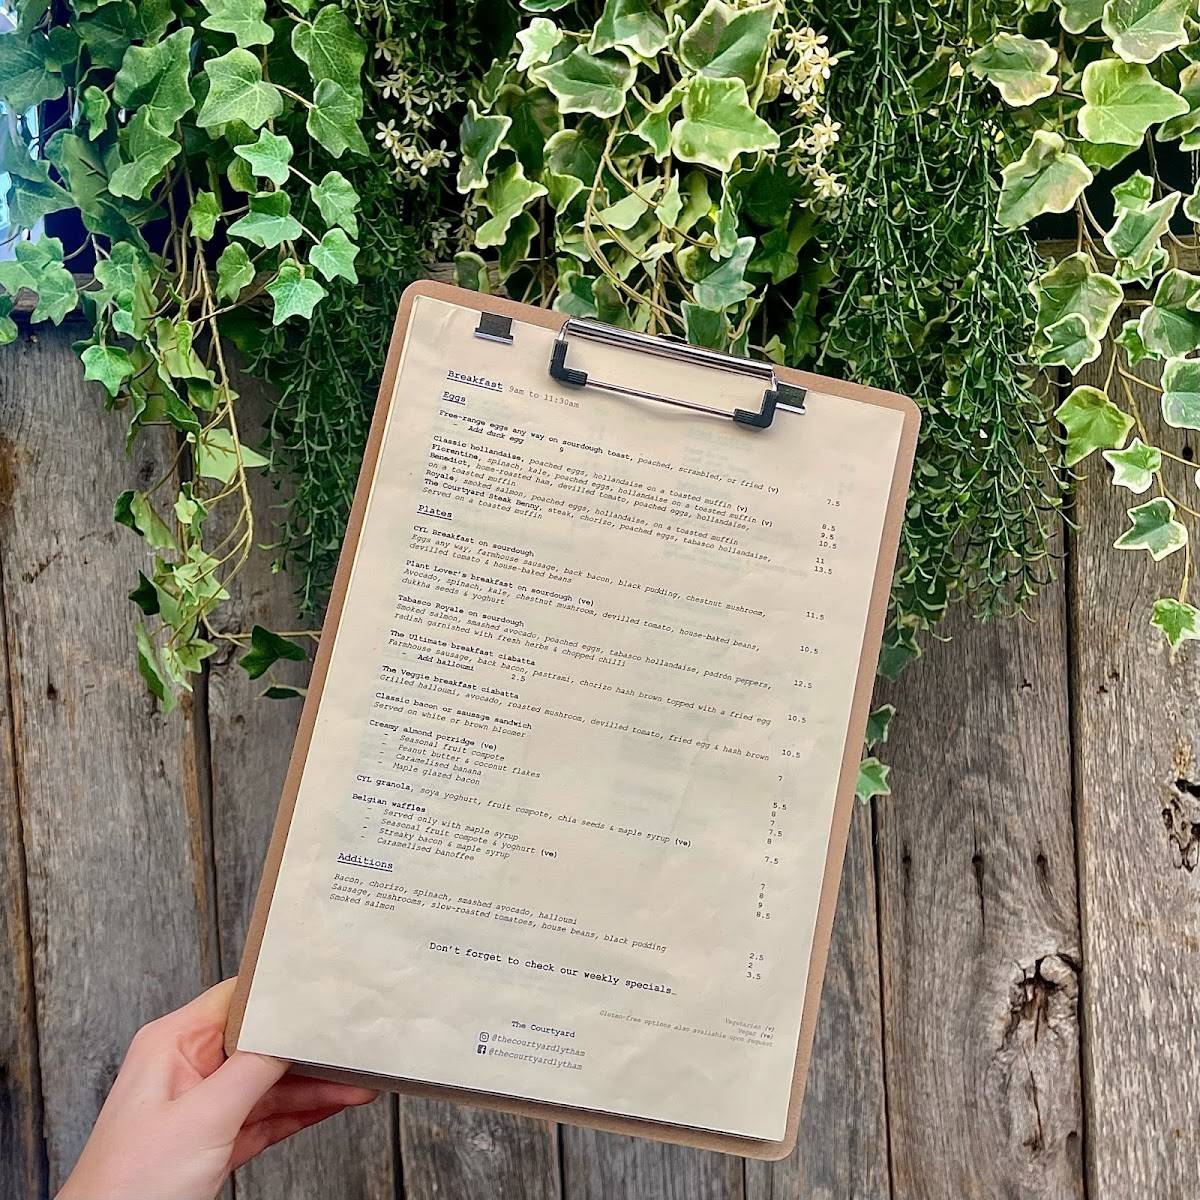 Breakfast 9am to 11:30am
Eggs
Free-range eggs any way on sourdough toast, poached, scrambled, or fried (v) 7.5
- Add duck egg 9
Classic hollandaise, poached eggs, hollandaise on a toasted muffin (v) 8.5
Florentine, spinach, kale, poached eggs, hollandaise on a toasted muffin (v) 9.5
Benedict, home-roasted ham, devilled tomato, poached eggs, hollandaise, 10.5
on a toasted muffin
Royale, smoked salmon, poached eggs, hollandaise, on a toasted muffin 11
The Courtyard Steak Benny, steak, chorizo, poached eggs, tabasco hollandaise, 13.5
Served on a toasted muffin
Plates
CYL Breakfast on sourdough
Eggs any way, farmhouse sausage, back bacon, black pudding, chestnut mushroom, 11.5
devilled tomato & house-baked beans
Plant Lover's breakfast on sourdough (ve)
Avocado, spinach, kale, chestnut mushroom, devilled tomato, house-baked beans, 10.5
dukkha seeds & yoghurt
Tabasco Royale on sourdough
Smoked salmon, smashed avocado, poached eggs, tabasco hollandaise, padrón peppers, 12.5
radish garnished with fresh herbs & chopped chilli
The Ultimate breakfast ciabatta
Farmhouse sausage, back bacon, pastrami, chorizo hash brown topped with a fried egg 10.5
- Add halloumi 2.5
The Veggie breakfast ciabatta
Grilled halloumi, avocado, roasted mushroom, devilled tomato, fried egg & hash brown 10.5
Classic bacon or sausage sandwich 7
Served on white or brown bloomer
Creamy almond porridge (ve) 5.5
- Seasonal fruit compote 8
- Peanut butter & coconut flakes 7
- Caramelised banana 7.5
- Maple glazed bacon 8
CYL granola, soya yoghurt, fruit compote, chia seeds & maple syrup (ve) 7.5
Belgian waffles
- Served only with maple syrup 7
- Seasonal fruit compote & yoghurt (ve) 8
- Streaky bacon & maple syrup 9
- Caramelised banoffee 8.5
Additions
Bacon, chorizo, spinach, smashed avocado, halloumi 2.5
Sausage, mushrooms, slow-roasted tomatoes, house beans, black pudding 2
Smoked salmon 3.5
Don't forget to check our weekly specials_
Vegetarian (v)
Vegan (ve)
Gluten-free options also available upon request
The Courtyard
@thecourtyardlytham
@thecourtyardlytham